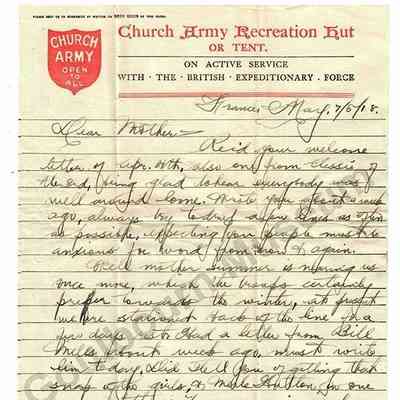 CHURCH
ARMY
OPEN
TO
ALL
Church Army Recreation Hut
OR TENT.
ON ACTIVE SERVICE
WITH · THE · BRITISH · EXPEDITIONARY · FORCE
France, May, 7/5/18.
Dear Mother =
Rec'd your welcome
letter of Apr. also one from Clessie of
the 3rd, being glad to hear everybody was
well around home. Wrote you about a week
ago, always try to drop a few lines as often
as possible, expecting you people must be
anxious for word from now & again.
Well mother summer is nearing us
once more, which the troops certainly
prefer towards the winter, at present
we are stationed back of the line for a
few days rest. Had a letter from Bill
Mills about week ago, must write
him today. Did I tell you of getting that
snap of the girls, & Merle Hutton, in one